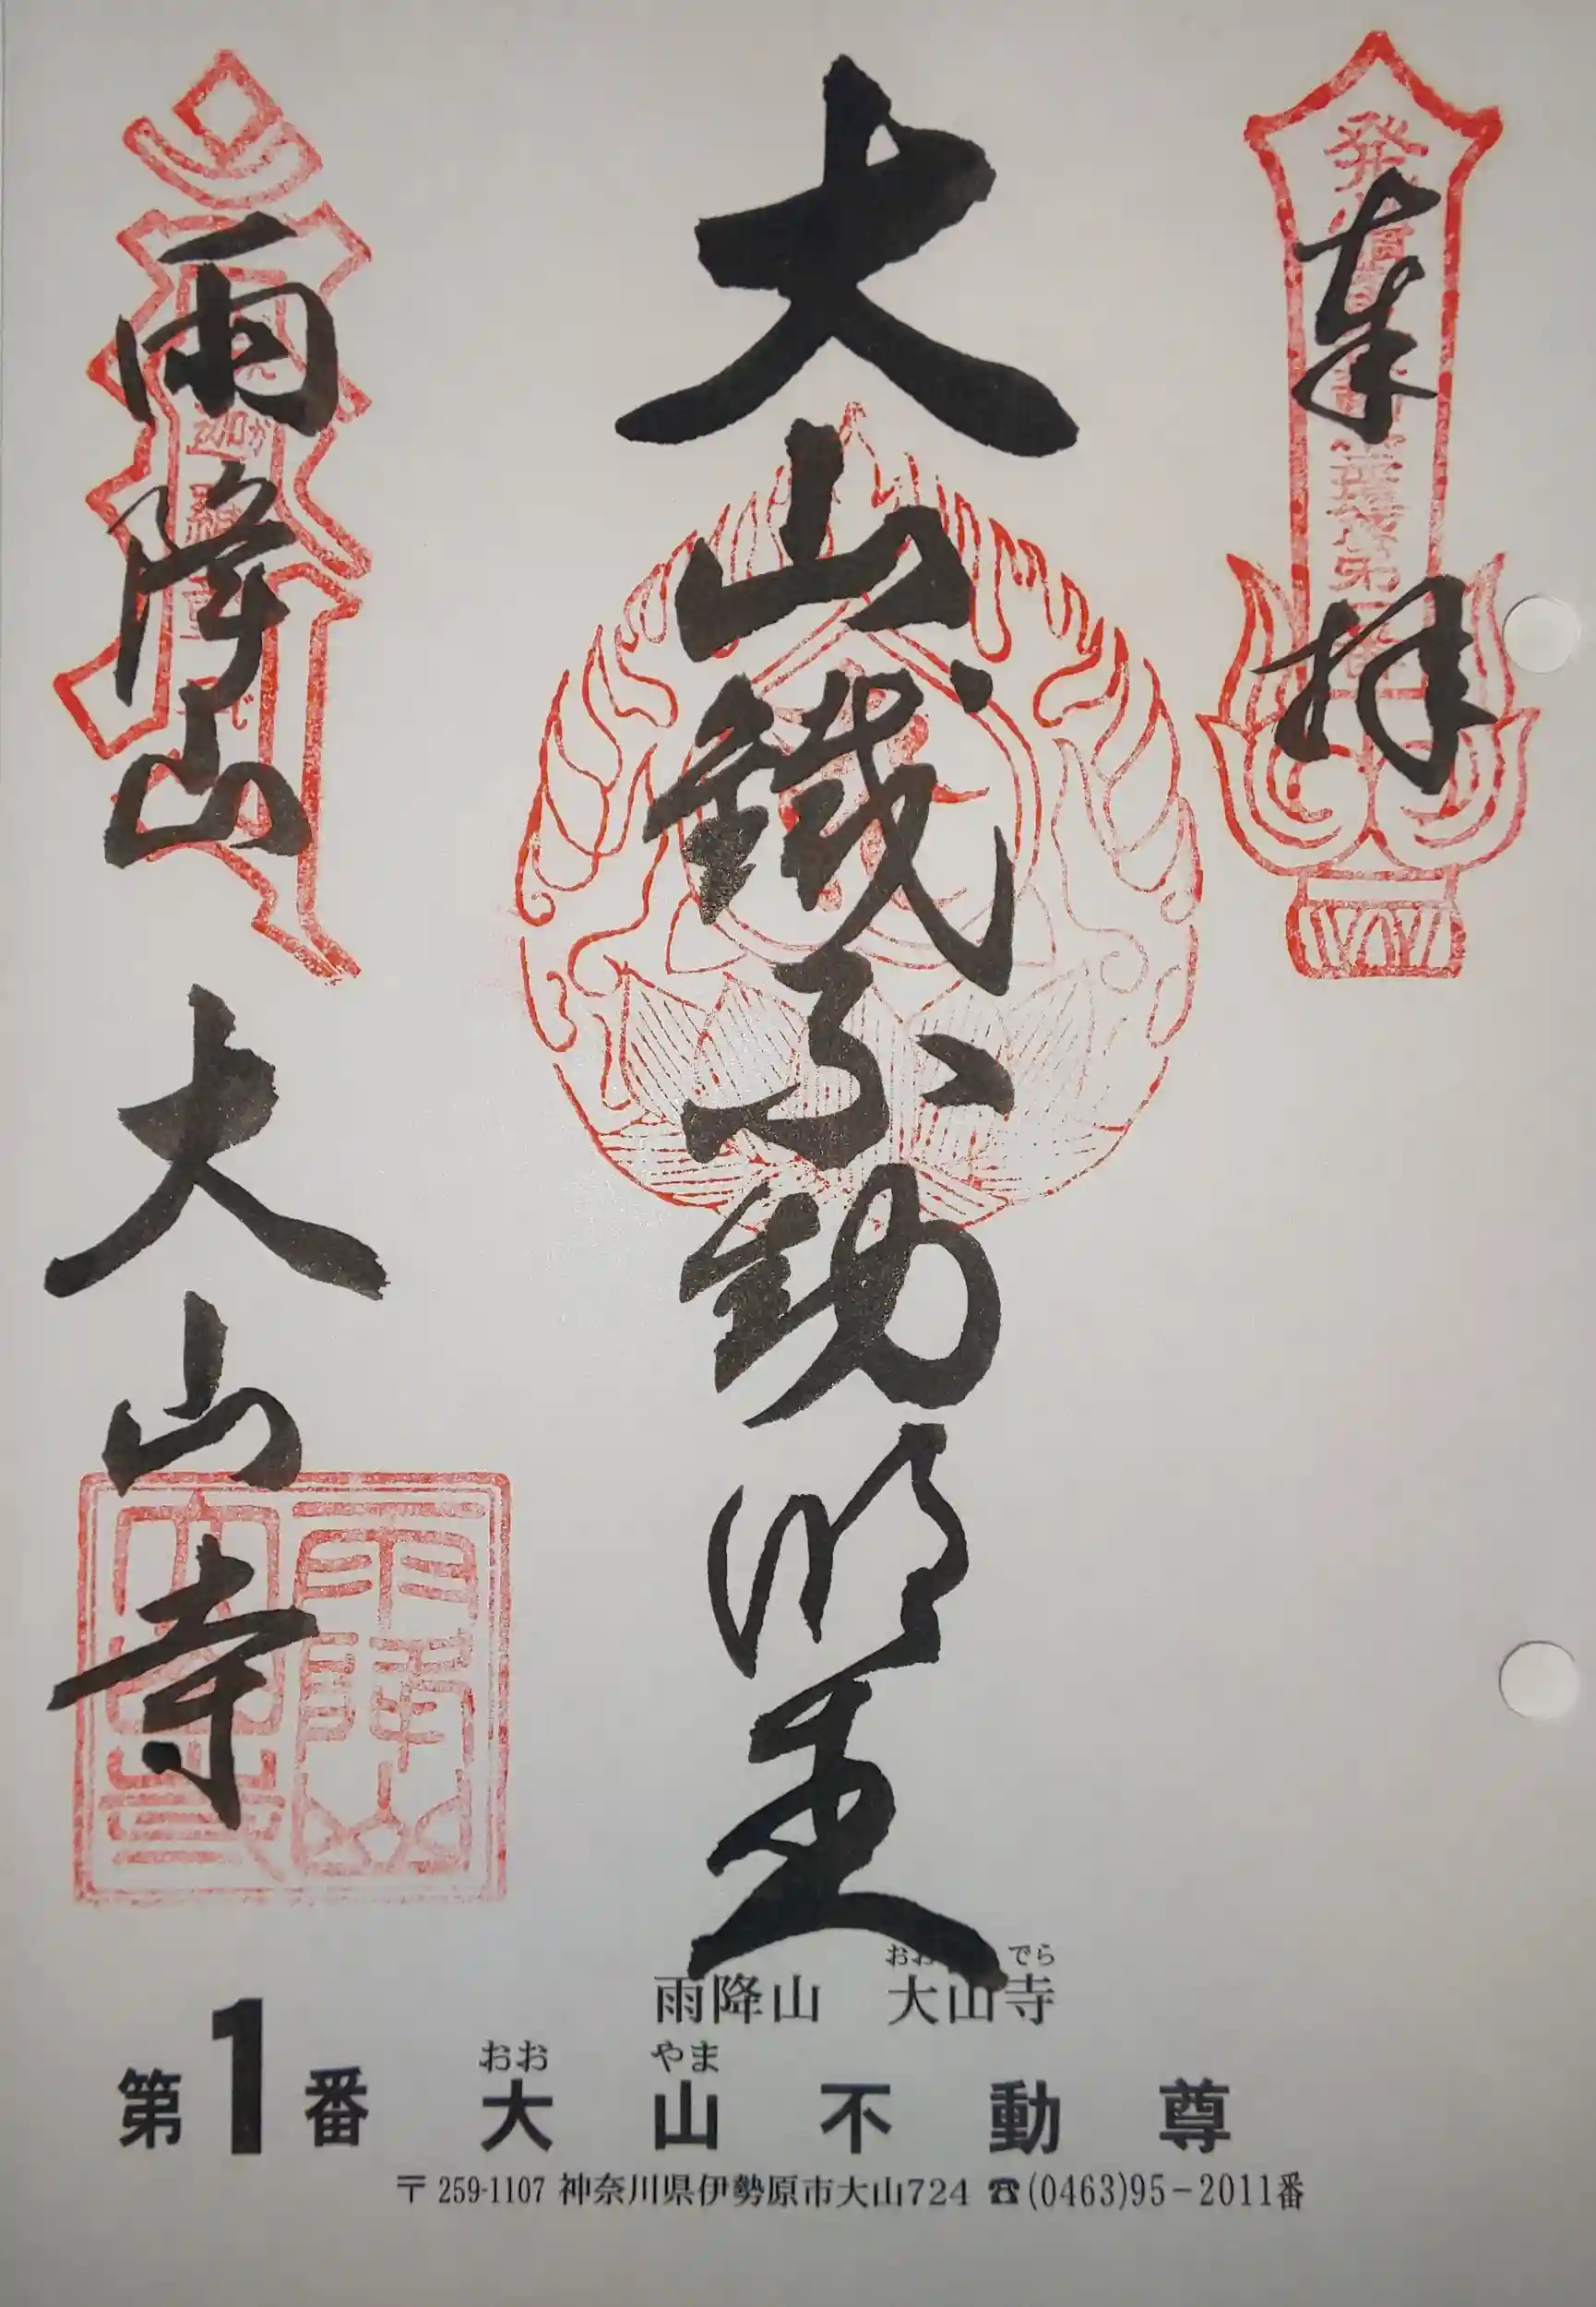 奉拝
大山鐵不動明王
雨降山
大山寺
雨降山 大山寺
第1番 大山不動尊
おお やま
〒259-1107 神奈川県伊勢原市大山724 ☎(0463)95-2011番